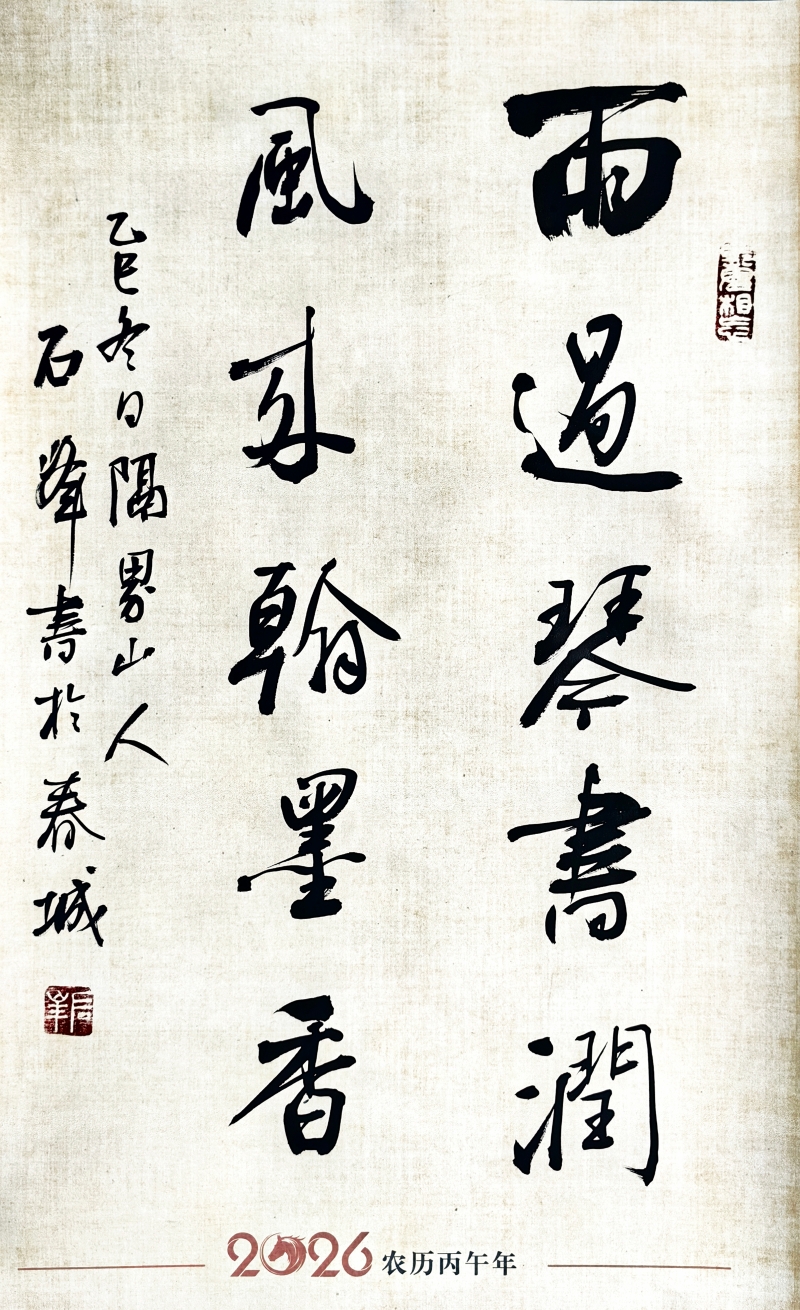 雨過琴書潤
風來翰墨香
乙巳冬日隔界山人
石峰書於春城
2026 农历丙午年